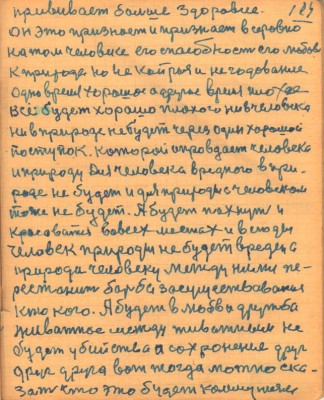 прививает больше здоровие. 184
Он это признает и признает в
на том человеке его способность его любовь
к природе но не хитрыя и негодование
Одно время хорошое а другое время плохое
Всё будет хорошо плохого ни в человека
ни в природе не будет через один хороший
поступок. Которой оправдает человека
и природу Для человека вредного в при-
роде не будет и для природы с человеком
тоже не будет. А будет пахнут и
красавать во всех местах и всюды
Человек природы не будет вреден а
природа человеку между ними пе-
рестанит барба засуществования
кто кого. А будет в мобвы дружба
животное между животными не
будет убийства а сохронение друг
друг друга вот тогда можно ска-
зать что это будет коммунизм